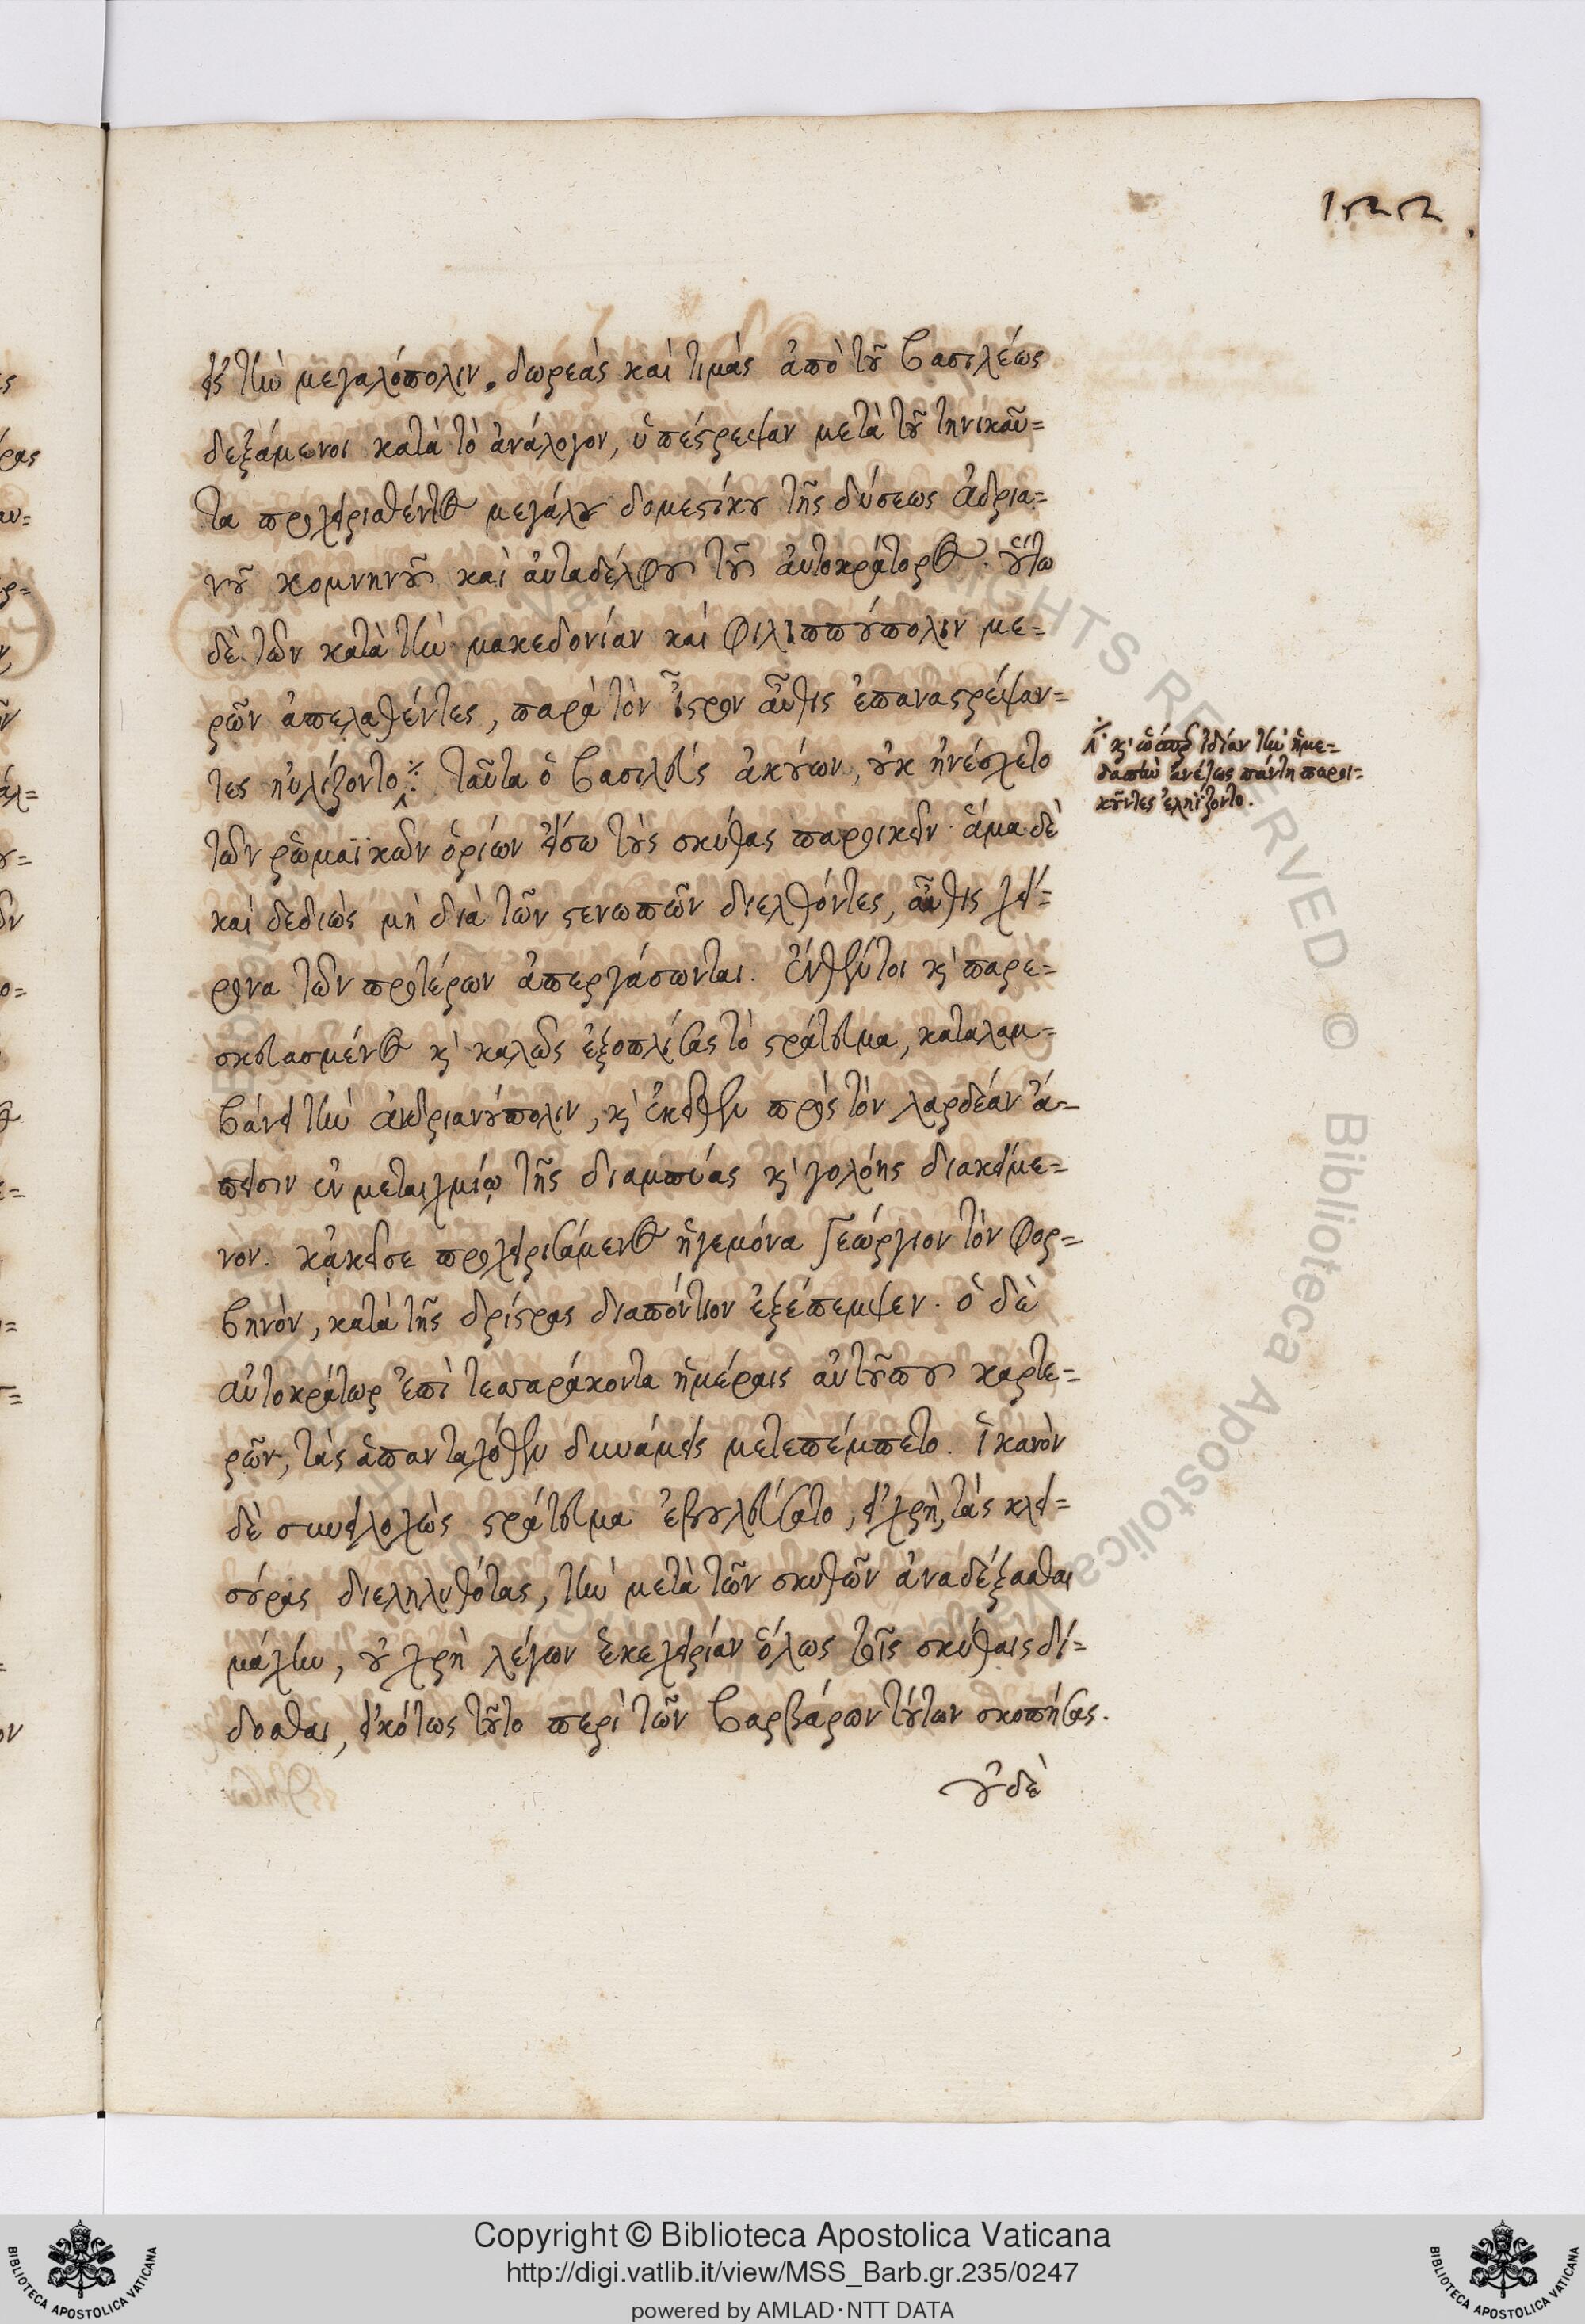 122
εἰς τὴν μεγαλόπολιν. δωρεάς καὶ τιμάς ἀπὸ τοῦ βασιλέως
δεξάμενοι κατὰ τὸ ἀνάλογον, ὑπέστρεψαν μετὰ τοῦ τηνικαῦ=
τα προχειρισθέντος μεγάλου δομεστίκου τῆς δύσεως ἀδρια=
νοῦ κομνηνοῦ καὶ αὐταδέλφου τοῦ αὐτοκράτορος. οὕτω
δὲ τῶν κατὰ τὴν μακεδονίαν καὶ φιλιππούπολιν με=
ρῶν ἀπελαθέντες, παρὰ τὸν ἴστρον αὖθις ἐπαναστρέψαν=
τες ηὐλίζοντο ⁒ ταῦτα ὁ βασιλεὺς ἀκούων, οὐκ ἠνέσχετο
⁒ κ' ὥσπερ ἰδίαν τὴν ἡμε=
δαπὴν ἀνέτως πάντη παροι=
κοῦντες ἐληΐζοντο.
τῶν ῥωμαϊκῶν ὁρίων εἴσω τοὺς σκύθας παροικεῖν· ἅμα δὲ
καὶ δεδιὼς μὴ διὰ τῶν στενωπῶν διελθόντες, αὖθις χεί=
ρονα τῶν προτέρων ἀπεργάσωνται. ἔνθεν τοι κ' παρε=
σκευασμένος κ' καλῶς ἐξοπλίσας τὸ στράτευμα, καταλαμ=
βάνει τὴν ἀνδριανούπολιν, κ' ἐκεῖθεν πρὸς τὸν λαρδέαν ἄ=
πεισιν ἐν μεταιχμίῳ τῆς διαμπόας κ' γολόης διακείμε=
νον. κἀκεῖσε προχειρισάμενος ἡγεμόνα Γεώργιον τὸν φορ=
βηνὸν, κατὰ τῆς δρίστρας διαπόντιον ἐξέπεμψεν. ὁ δὲ
αὐτοκράτωρ ἐπὶ τεσσαράκοντα ἡμέραις αὐτοῦ που καρτε=
ρῶν, τὰς ἁπανταχόθεν δυνάμεις μετεπέμπετο. ἱκανὸν
δὲ συνειλοχὼς στράτευμα ἐβουλεύσατο, εἰ χρὴ, τὰς κλει=
σούρας διεληλυθότας, τὴν μετὰ τῶν σκυθῶν ἀναδέξασθαι
μάχην, οὐ χρὴ λέγων ἐκεχειρίαν ὅλως τοῖς σκύθαις δί=
δοσθαι, εἰκότως τοῦτο περὶ τῶν βαρβάρων τούτων σκοπήσας.
οὐδὲ
RIGHTS RESERVED © Biblioteca Apostolica Vaticana
Copyright © Biblioteca Apostolica Vaticana
http://digi.vatlib.it/view/MSS_Barb.gr.235/0247
powered by AMLAD·NTT DATA
BIBLIOTECA APOSTOLICA VATICANA
BIBLIOTECA APOSTOLICA VATICANA